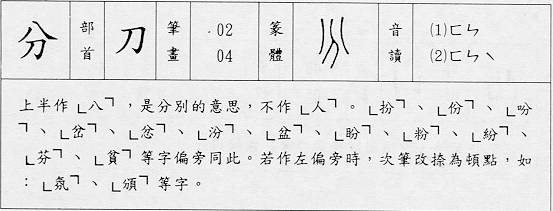 分 部首 刀 筆畫 02 04 篆體 音讀 (1)ㄈㄣ (2)ㄈㄣˋ
上半作「八」，是分別的意思，不作「人」。「扮」、「份」、「吩
」、「岔」、「忿」、「汾」、「盆」、「盼」、「粉」、「紛」、
「芬」、「貧」等字偏旁同此。若作左偏旁時，次筆改捺為頓點，如
：「氛」、「頒」等字。